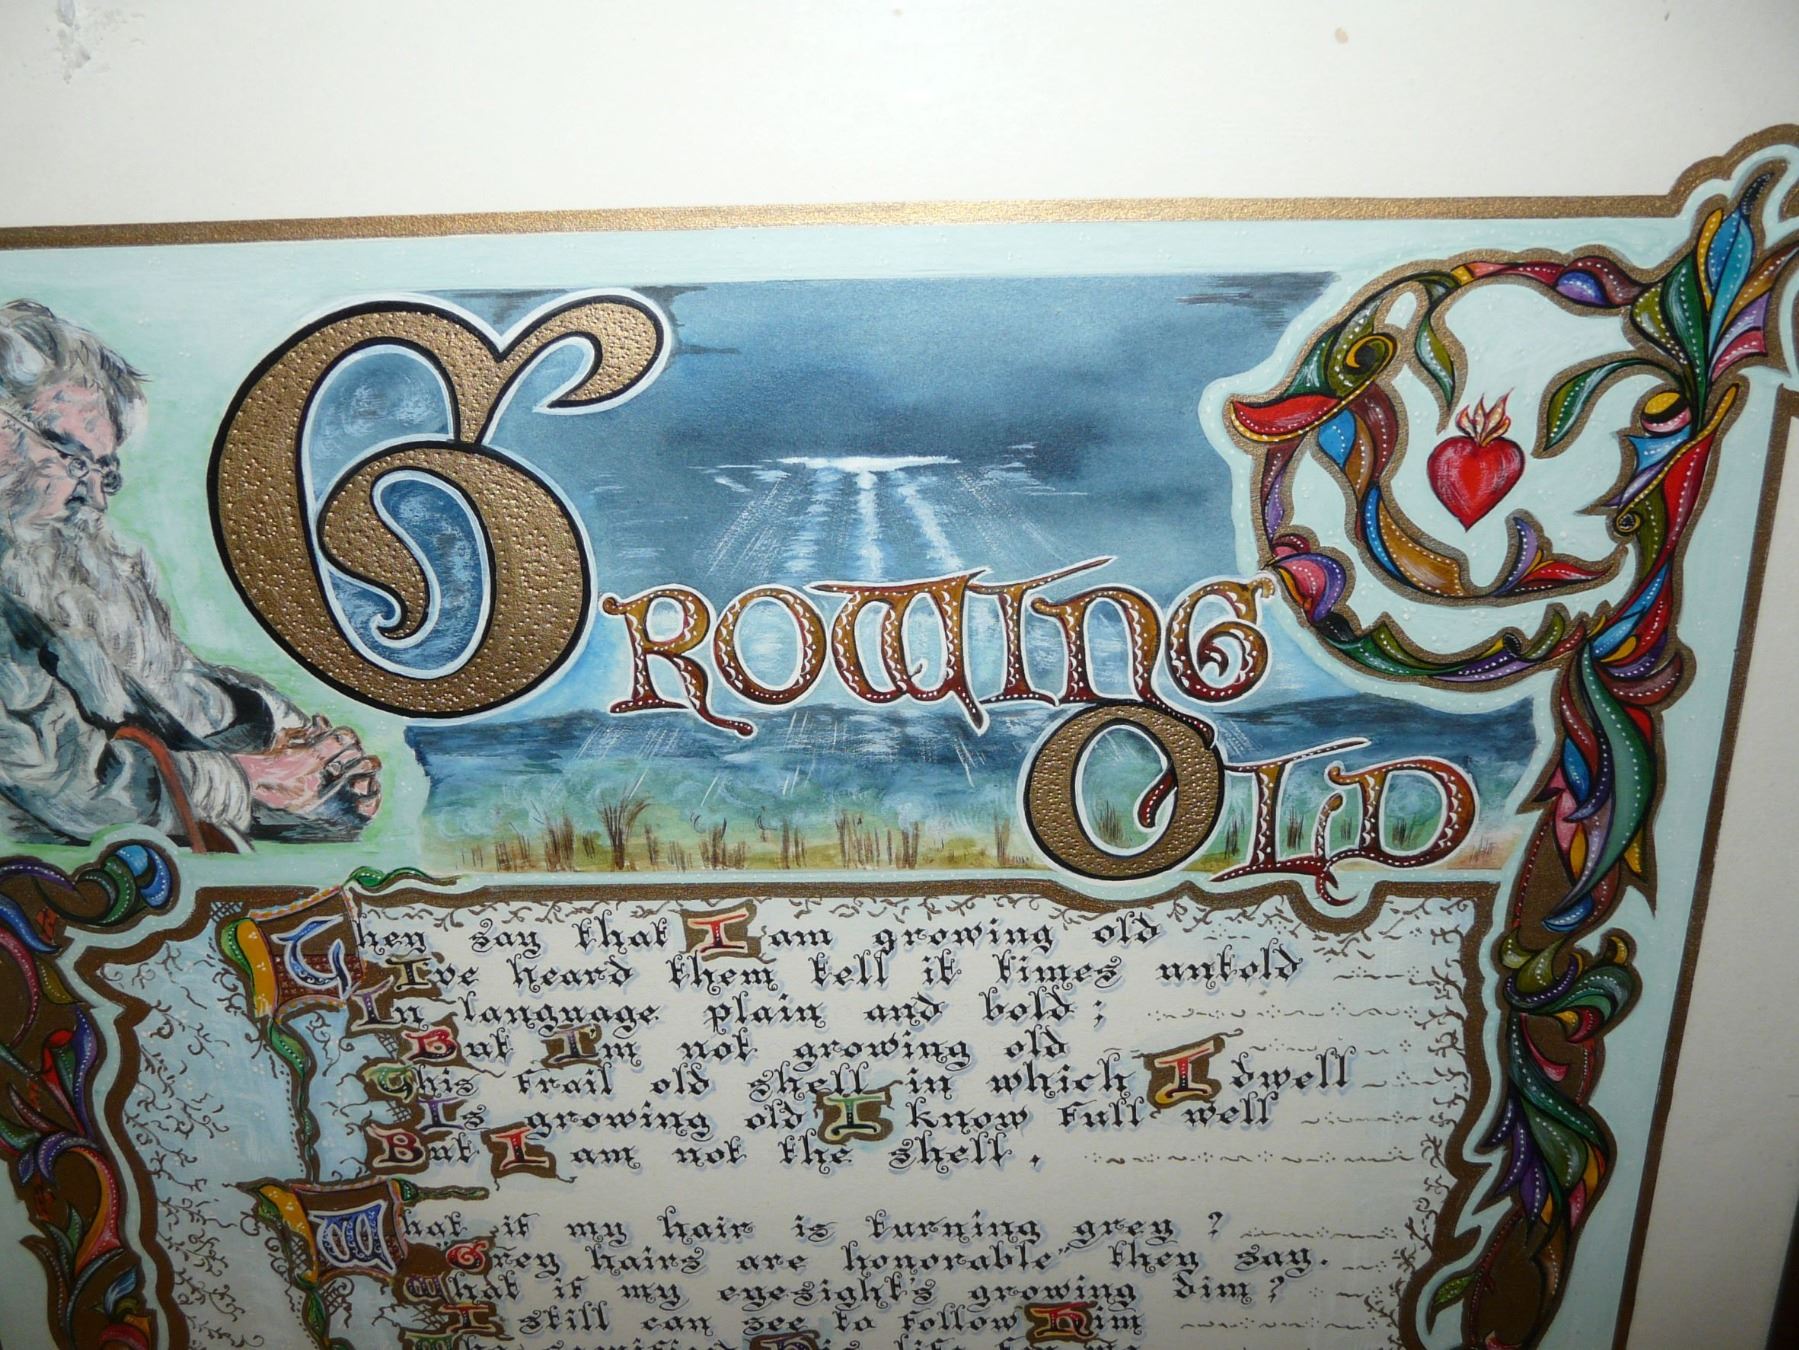 Growing
Old
They say that I am growing old
I've heard them tell it times untold
In language plain and bold;
But I'm not growing old
This frail old shell in which I dwell
Is growing old I know full well
But I am not the shell.
What if my hair is turning grey?
"Grey hairs are honorable" they say.
What if my eyesight's growing dim?
I still can see to follow Him
Who sacrificed His life for me